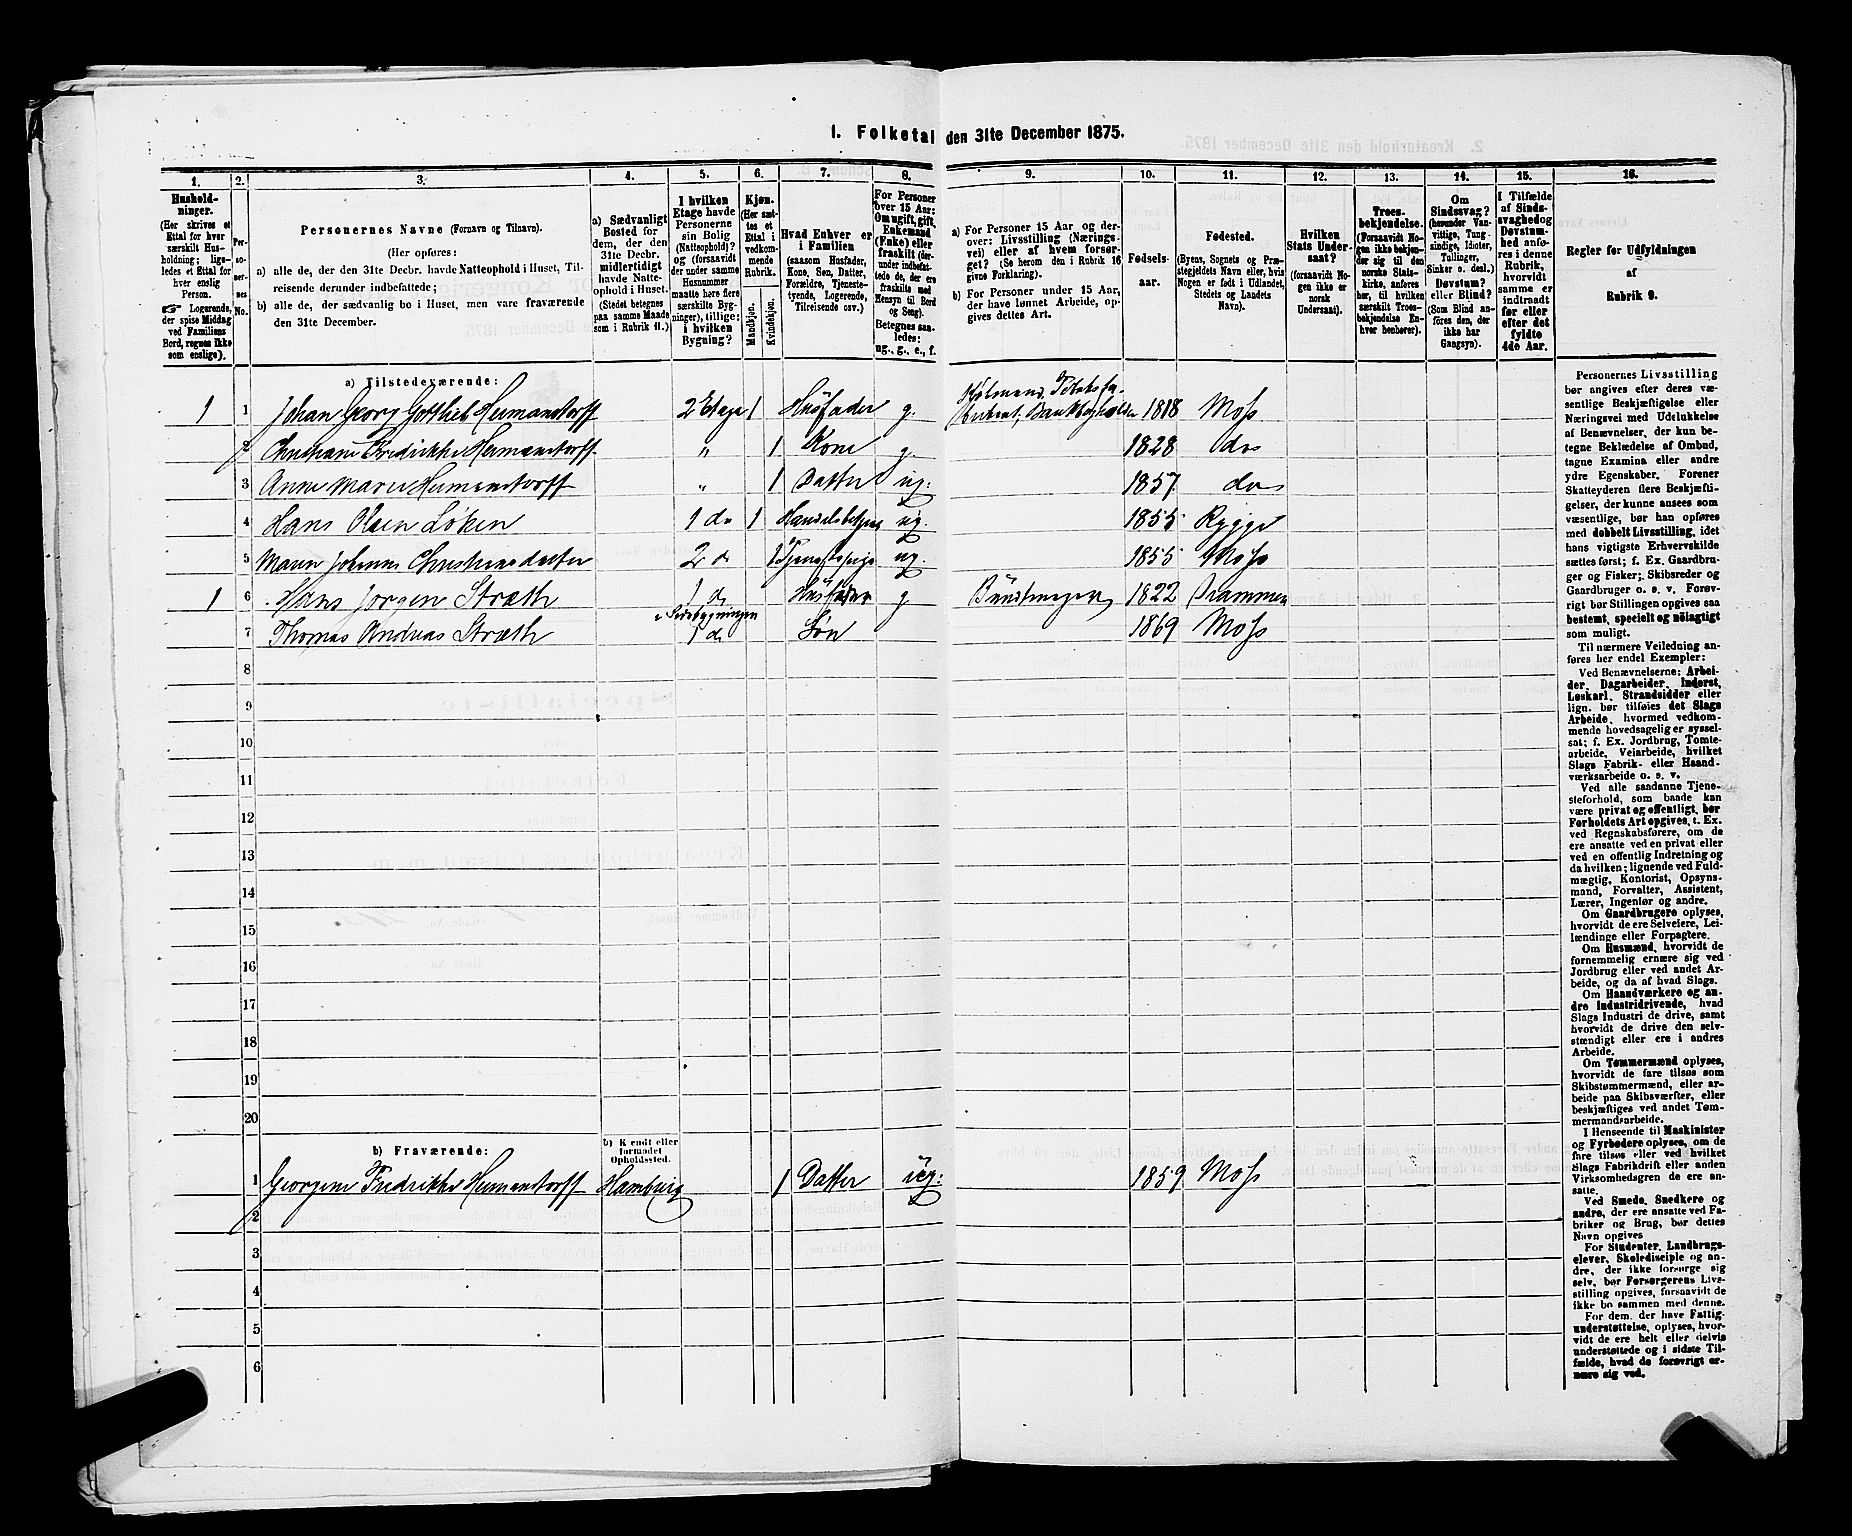 1. Folketal den 31te December 1875.
1. 2. 3. 4. 5. 6. 7. 8. 9. 10. 11. 12. 13. 14. 15. 16.
Hushold-
ninger.
(Her skrives et
Ettal for hver
særskilt Hus-
holdning; lige-
ledes et Ettal for
hver enslig
Person.
Logerende,
der spise Middag
ved Familiens
Bord, regnes ikke
som enslige).
Per-
so-
ner-
nes
No.
Personernes Navne (Fornavn og Tilnavn).
(Her opføres:
a) alle de, der den 31te Decbr. havde Natteophold i Huset, Til-
reisende derunder indbefattede;
b) alle de, der sædvanlig bo i Huset, men vare fraværende
den 31te December.
a) Sædvanligt
Bosted for
dem, der den
31te Decbr.
midlertidigt
havde Natte-
ophold i Huset.
(Stedet betegnes
paa samme Maade
som i Rubrik 11.)
I hvilken
Etage havde
Personerne
sin Bolig
(Natteophold)?
og (forsaavidt
der under samme
Husnummer
maatte høre flere
særskilte Byg-
ninger), tillige:
i hvilken
Bygning?
Kjøn.
(Her sæt-
tes et
Ettal i
vedkom-
mende
Rubrik.
Mandkjøn.
Kvindekjøn.
Hvad Enhver er
i Familien
(saasom Husfader,
Kone, Søn, Datter,
Forældre, Tjeneste-
tyende, Logerende,
Tilreisende osv.)
For Personer
over 15 Aar:
Om ugift, gift,
Enkemand
(Enke) eller
fraskilt (der-
under indbefat-
tede de, der ere
fraskilte med
Hensyn til Bord
og Seng).
Betegnes saa-
ledes:
ug., g., e., f.
a) For Personer 15 Aar og der-
over: Livsstilling (Nærings-
vei) eller af hvem forsør-
get? (Se herom den i Rubrik 16
givne Forklaring).
b) For Personer under 15 Aar,
der have lønnet Arbeide, op-
gives dettes Art.
Fødsels-
aar.
Fødested.
(Byens, Sognets og Præ-
stegjeldets Navn eller, hvis
Nogen er født i Udlandet,
Stedets og Landets
Navn).
Hvilken
Stats Under-
saat?
(forsaavidt No-
gen ikke er
norsk
Undersaat).
Troes-
bekjendelse.
(Forsaavidt No-
gen ikke bekjen-
der sig til den
norske Stats-
kirke, anføres
her, til hvilken
særskilt Troes-
bekjendelse En-
hver henhører).
Om
Sindssvag?
(herunder Van-
vittige, Tung-
sindige, Idioter,
Tullinger,
Sinker o. desl.)
Døvstum?
eller Blind?
(Som Blind an-
føres den, der
ikke har
Gangsyn).
I Tilfælde
af Sinds-
svaghed og
Døvstum-
hed anfø-
res i denne
Rubrik,
hvorvidt
samme er
indtraadt
før eller
efter det
fyldte
4de Aar.
Regler for Udfyldningen
af
Rubrik 9.
a) Tilstedeværende:
1 1 Johan Georg Gottlieb Heimanstorff 2 Etage 1 Husfader g. 1818 Moss
2 Christiane Fredrikke Heimanstorff " 1 Kone g. 1828 do
3 Anne Marie Heimanstorff " 1 Datter ug. 1857 do
4 Hans Olsen Løken 1 do 1 Handelsbetjent ug. 1855 Rygge
5 Maren Johanne Christiansdatter 2 do 1 Tjenestepige ug. 1855 Moss
1 6 Hans Jørgen Stræth 1 do Husfader g 1822 Drammen
i Sidebygningen
7 Thomas Andreas Stræth 1 do Søn 1869 Moss
8
9
10
11
12
13
14
15
16
17
18
19
20
b) Fraværende:
b) Kjendt eller
formodet
Opholdssted.
1 Georgine Fredrikke Heimanstorff Hamburg 1 Datter ug. 1859 Moss
2
3
4
5
6
Personernes Livsstilling
bør angives efter deres væ-
sentlige Beskjæftigelse eller
Næringsvei med Udelukkelse
af Benævnelser, der kun be-
tegne Beklædelse af Ombud,
tagne Examina eller andre
ydre Egenskaber. Forener
Skatteyderen flere Beskjæfti-
gelser, der kunne ansees som
væsentlige, bør han opføres
med dobbelt Livsstilling, idet
hans vigtigste Erhvervskilde
sættes først; f. Ex. Gaardbru-
ger og Fisker; Skibsreder og
Gaardbruger o. s. v. Forøv-
rigt bør Stillingen opgives saa
bestemt, specielt og nøiagtigt
som muligt.
Til nærmere Veiledning an-
føres her endel Exempler:
Ved Benævnelserne: Arbei-
der, Dagarbeider, Inderst,
Løskarl, Strandsidder eller
lign. bør tilføies det Slags
Arbeide, hvormed vedkom-
mende hovedsagelig er syssel-
sat; f. Ex. Jordbrug, Tomte-
arbeide, Veiarbeide, hvilket
Slags Fabrik- eller Haand-
værksarbeide o. s. v.
Ved alle saadanne Tjene-
steforhold, som baade kan
være privat og offentligt, bør
Forholdets Art opgives, t. Ex.
ved Regnskabsførere, om de
ere ansatte ved en privat eller
ved en offentlig Indretning og
da hvilken; lignende ved Fuld-
mægtig, Kontorist, Opsyns-
mand, Forvalter, Assistent,
Lærer, Ingeniør og andre.
Om Gaardbrugere oplyses,
hvorvidt de ere Selveiere, Lei-
lændinge eller Forpagtere.
Om Husmænd, hvorvidt de
fornemmelig ernære sig ved
Jordbrug eller ved andet Ar-
beide, og da af hvad Slags.
Om Haandværkere og an-
dre Industridrivende, hvad
Slags Industri de drive, samt
hvorvidt de drive den selv-
stændigt eller ere i andres
Arbeide.
Om Tømmermænd oplyses,
hvorvidt de fare tilsøs som
Skibstømmermænd, eller ar-
beide paa Skibsværfter, eller
beskjæftiges ved andet Tøm-
mermandsarbeide.
I Henseende til Maskinister
og Fyrbødere oplyses, om de
fare tilsøs eller ved hvilket
Slags Fabrikdrift eller anden
Virksomhedsgren de ere an-
satte.
Ved Smede, Snedkere og
andre, der ere ansatte ved Fa-
briker og Brug, bør dettes
Navn opgives
For Studenter, Landbrugs-
elever, Skoledisciple og an-
dre, der ikke forsørge sig
selv, bør Forsørgerens Livs-
stilling opgives, forsaavidt de
ikke bo sammen med denne.
For dem, der have Fattig-
understøttelse, oplyses, hvor-
vidt de ere helt eller delvis
understøttede og i sidste Til-
fælde, hvad de forøvrigt er-
nære sig ved.